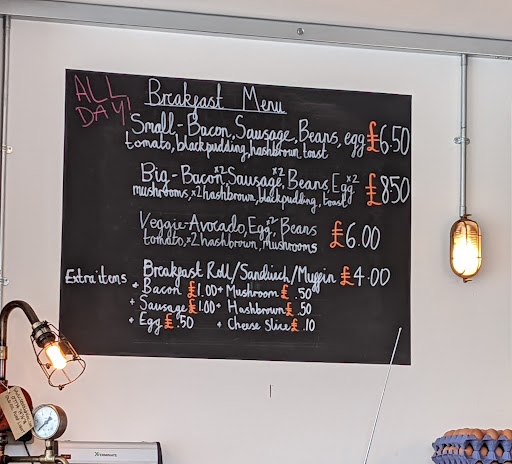 ALL DAY!
Breakfast Menu
Small - Bacon, Sausage, Beans, egg £6.50
tomato, black pudding, hashbrown, toast
Big - Bacon x2, Sausage x2, Beans Egg x2 £850
mushrooms, x2 hashbrown, black pudding, toast
Veggie - Avocado, Egg x2, Beans £6.00
tomato, x2 hashbrown, mushrooms
Breakfast Roll/Sandwich/Muffin £4.00
Extra items
+ Bacon £1.00 + Mushroom £.50
+ Sausage £1.00 + Hashbrown £.50
+ Egg £.50 + Cheese Slice £.10